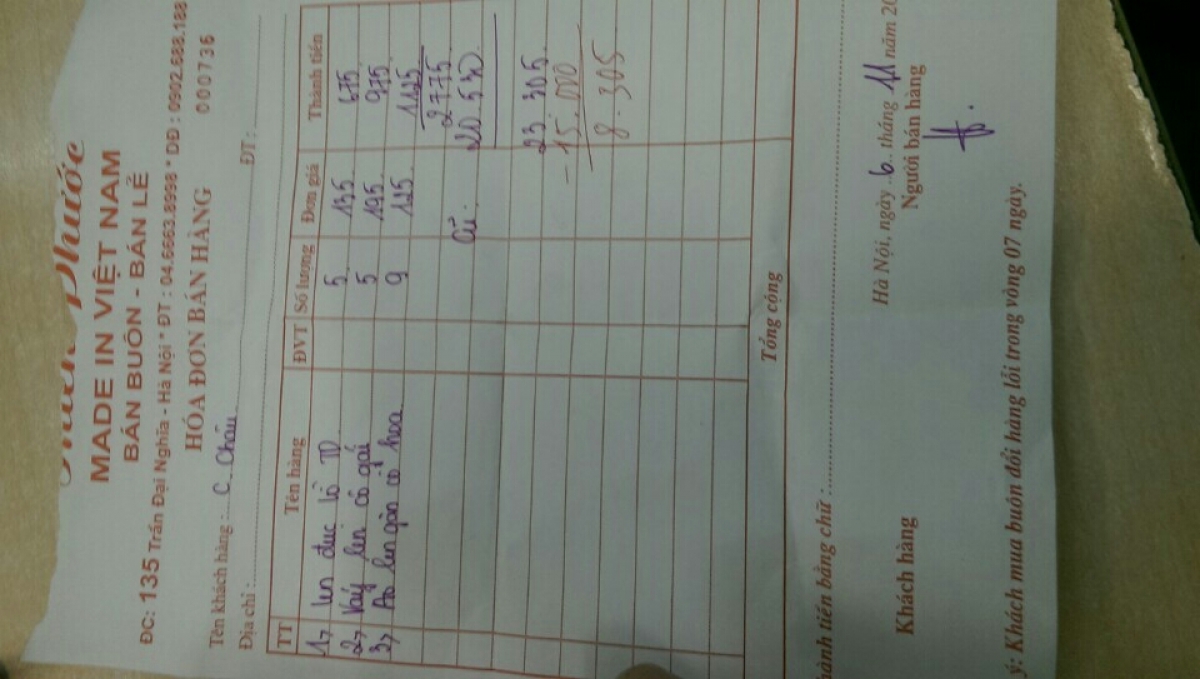 Phước
MADE IN VIỆT NAM
BÁN BUÔN - BÁN LẺ
ĐC: 135 Trần Đại Nghĩa - Hà Nội * ĐT : 04.6663.8998 * DĐ : 0902.688.188
HÓA ĐƠN BÁN HÀNG 000736
Tên khách hàng : C. Châu
Địa chỉ : ĐT :
TT Tên hàng ĐVT Số lượng Đơn giá Thành tiền
1, len đục lỗ TD 5 135 675
2, Váy len cô gái 5 195 975
3, Áo len gân cổ hoa 9 125 1125
2775
Cũ : 20.530
23.305
- 15.000
8.305
Tổng cộng
hành tiền bằng chữ :
Hà Nội, ngày 6 tháng 11 năm 20
Khách hàng Người bán hàng
ý: Khách mua buôn đổi hàng lỗi trong vòng 07 ngày.